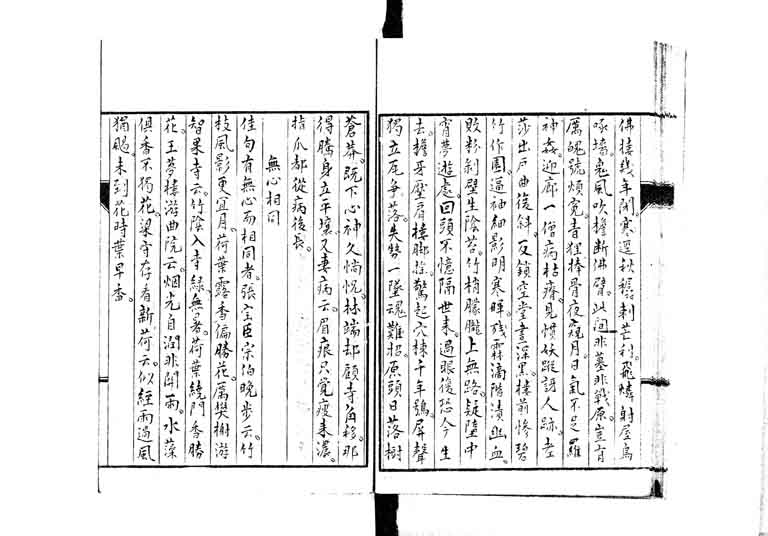 佛接幾年閉寒逕秋稜刺芒利飛螢射屋烏
啄墻鬼風吹簷斷佛臂此間非墓非戰原豈有
厲魄號煩寃青狸捧骨夜窺月日氣不足羅
神姦迎廊一僧病枯瘠見慣妖蹤訝人跡老
莎出戶曲復斜反鎖空堂晝深黑樓前慘碧
竹作圍逼袖細影明寒暉殘霖滴階漬幽血
敗粉剝壁生陰苔竹梢朦朧上無路疑墮中
宵夢遊處回頭不憶隔世來過眼復恐今生
去簷牙壓肩樓腳搖驚起穴棟千年鴞屏聲
獨立瓦爭落失勢一墜魂難招原頭日落樹
蒼莽既下心神久惝怳林端却顧寺角移那
得騰身立平壤又妻病云眉痕只覺瘦來濃
指爪都從病後長
無心相同
佳句有無心而相同者張宝臣宗伯晚步云竹
枝風影更宜月荷葉露香偏勝花厲樊榭游
智果寺云竹陰入寺綠無暑荷葉繞門香勝
花王夢樓游曲院云烟光自潤非關雨水藻
俱香不獨花梁守存看新荷云似經雨過風
猶颺未到花時葉早香